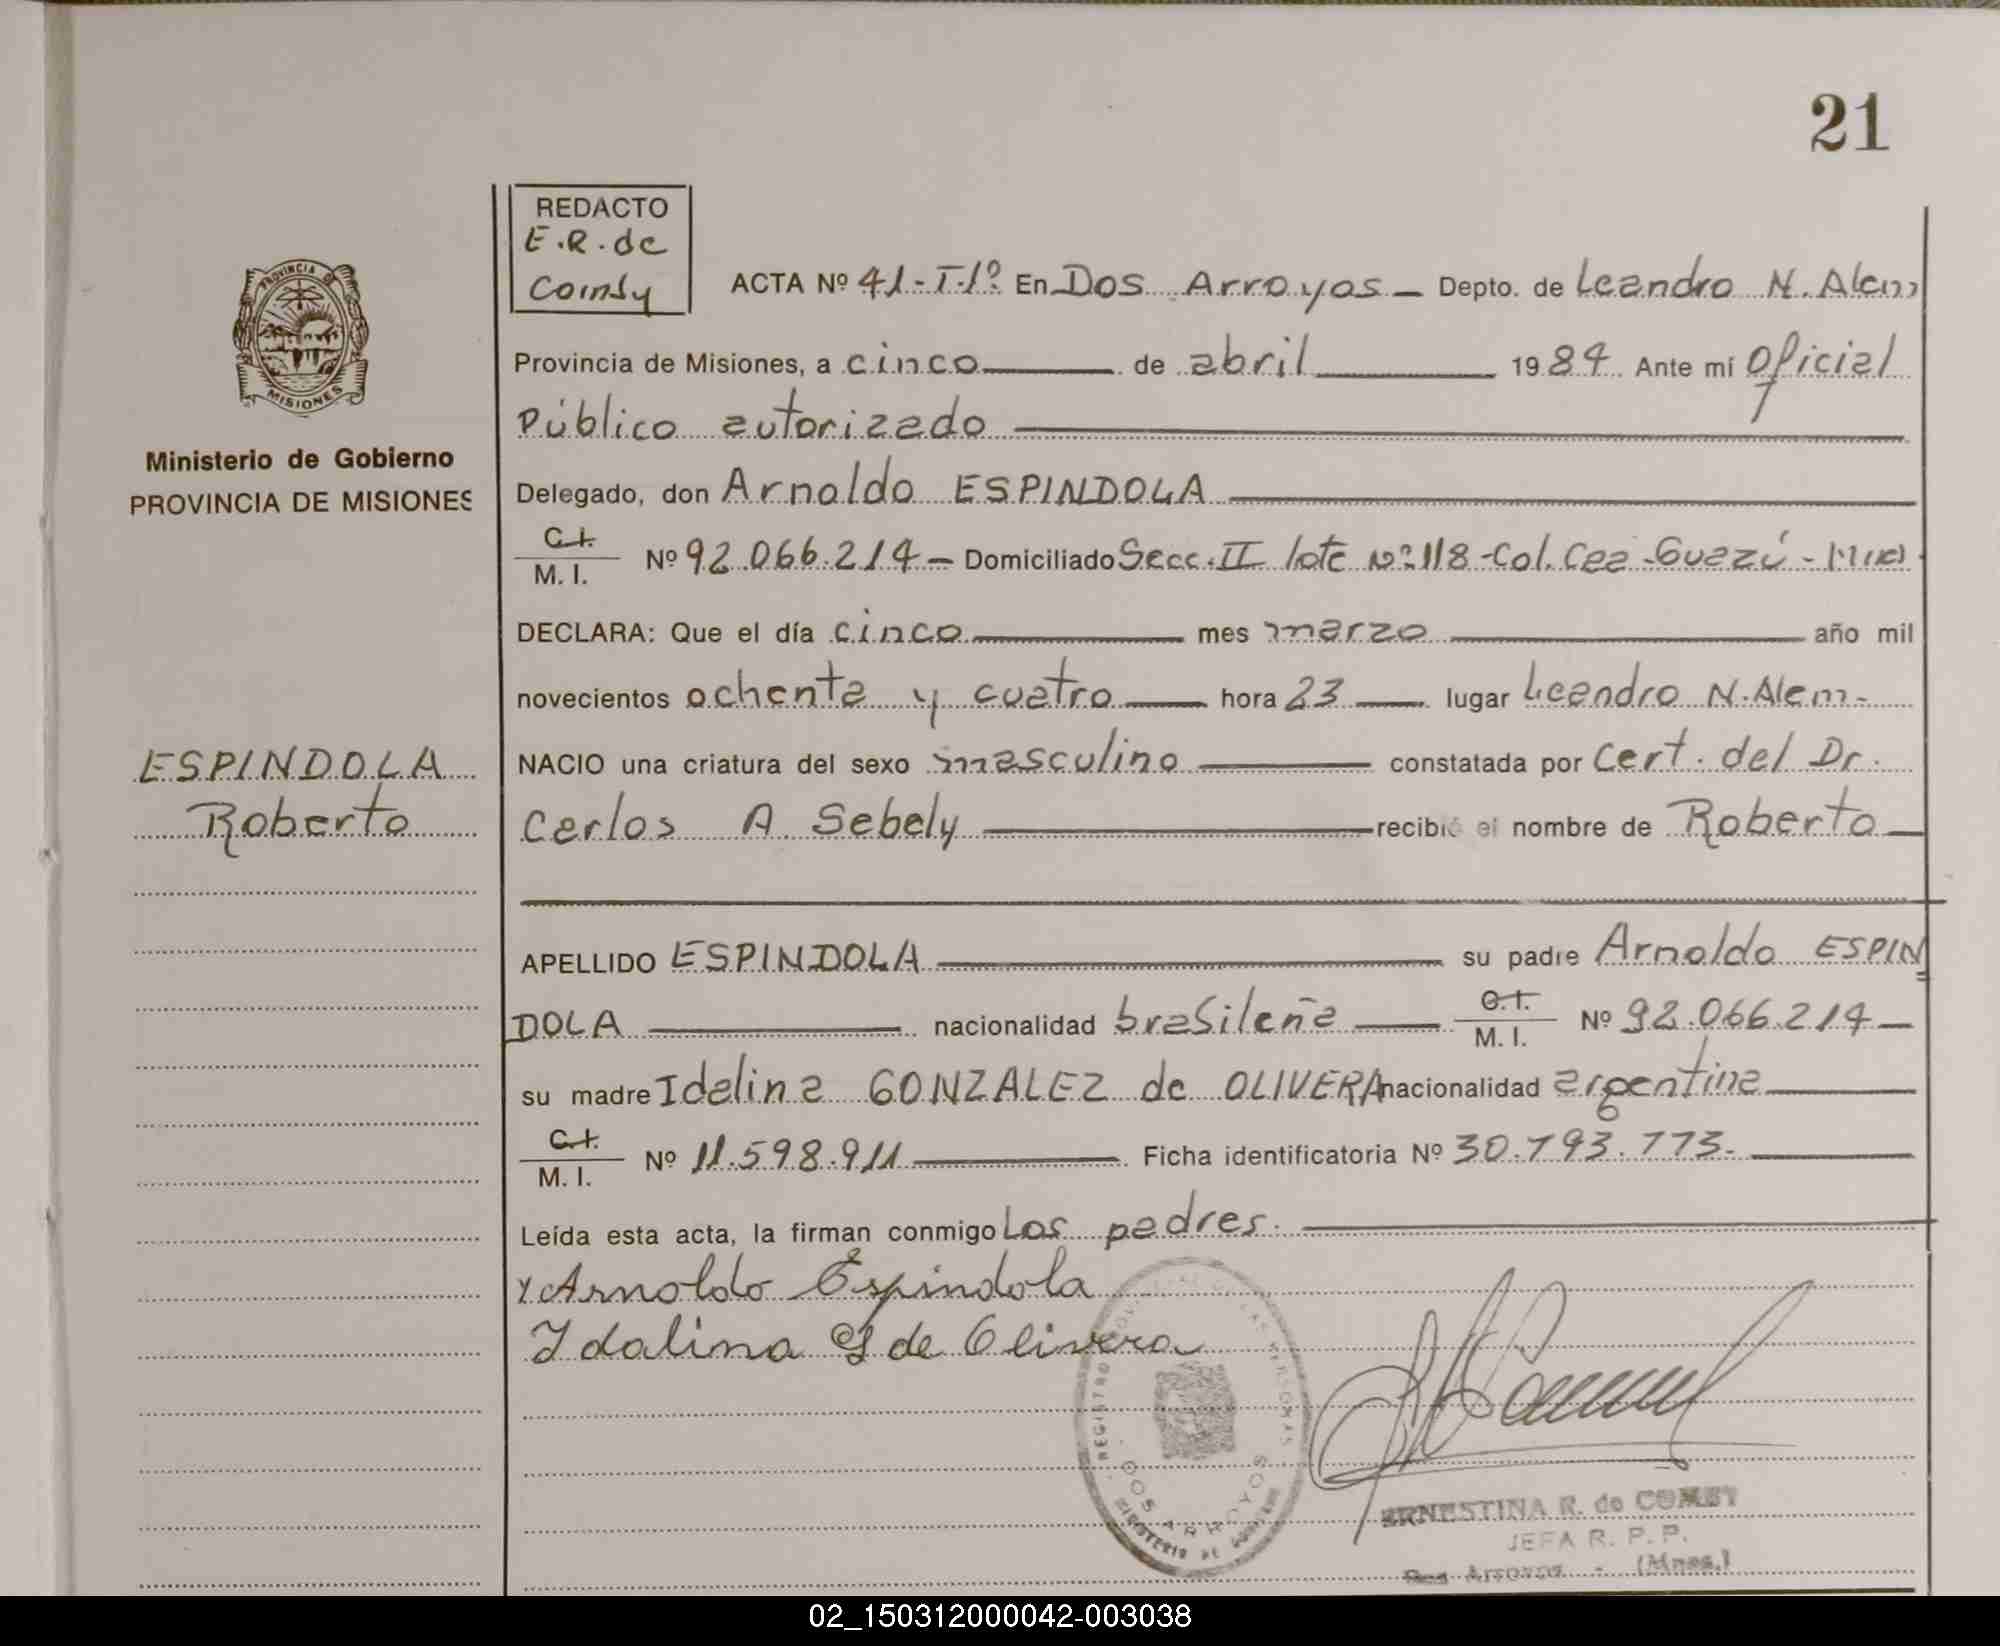 21
REDACTO
E.R. de
Comby
PROVINCIA DE
MISIONES
Ministerio de Gobierno
PROVINCIA DE MISIONES
ESPINDOLA
Roberto
ACTA Nº 41-T-1º En Dos Arroyos - Depto. de Leandro N. Alem
Provincia de Misiones, a cinco de abril 1984 Ante mí Oficial
Público autorizado
Delegado, don Arnoldo ESPINDOLA
C.I.
M. I. Nº 92.066.214 - Domiciliado Secc. II lote Nº 118 - Col. Caa-Guazú -
DECLARA: Que el día cinco mes marzo año mil
novecientos ochenta y cuatro hora 23 lugar Leandro N. Alem -
NACIO una criatura del sexo masculino constatada por Cert. del Dr.
Carlos A Sebely recibió el nombre de Roberto
APELLIDO ESPINDOLA su padre Arnoldo ESPIN
DOLA nacionalidad brasileña C.I.
M. I. Nº 92.066.214 -
su madre Idalina GONZALEZ de OLIVERA nacionalidad argentina
C.I.
M. I. Nº 11.598.911 Ficha identificatoria Nº 30.793.773.-
Leída esta acta, la firman conmigo Los padres.
x Arnoldo Espindola
Idalina G de Olivera
REGISTRO PROVINCIAL DE LAS PERSONAS
DOS ARROYOS
MINISTERIO DE GOBIERNO
ERNESTINA R. de COMBY
JEFA R. P. P.
Dos Arroyos - (Mnes.)
02_150312000042-003038